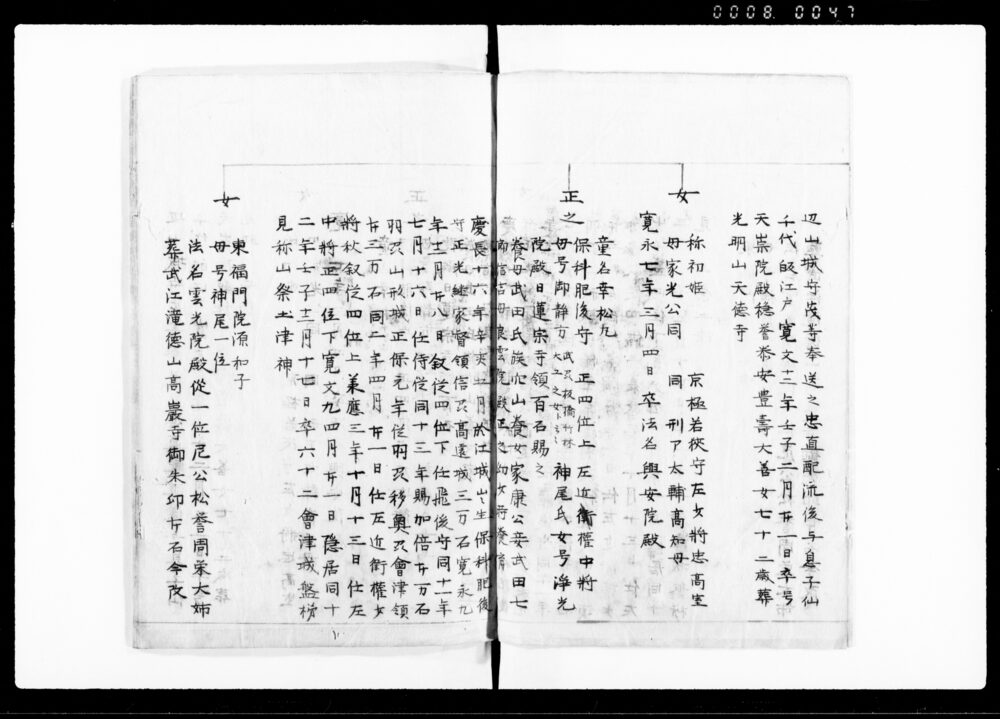 0008 0047
辺山城守茂等奉送之忠直配流後与息子仙
千代皈江戸寛文十二年壬子二月廿一日卒号
天崇院殿穏誉泰安豊寿大善女七十二歳葬
光明山天徳寺
女
称初姫 京極若狭守左少将忠高室
母家光公同 同 刑ア太輔高知母
寛永七年三月四日卒法名興安院殿
正之
童名幸松丸
保科肥後守 正四位上 左近衛権中将
母号御静方 武氏板橋竹林 神尾氏女号浄光
院殿日蓮宗寺領百石賜之
養母武田氏 穴山養女家康公妾武田七
慶長十六年辛亥五月於江城出生保科肥後
守正光継家督領信州高遠城三万石寛永九
年十二月廿八日叙従四位下任飛後守同十一年
七月十六日任侍従同十三年賜加倍廿万石
羽州山形城正保元年従羽州移奥州會津領
廿三万石同二年四月廿一日任左近衛権少
将秋叙従四位上兼應三年十月十三日任左
中将正四位下寛文九四月廿一日隠居同十
二年壬子十二月十七日卒六十二會津城磐梯
見祢山祭土津神
女
東福門院源和子
母号神尾一位
法名雲光院殿従一位尼公松誉周栄大姉
葬武江滝徳山高巖寺御朱印廿石今改